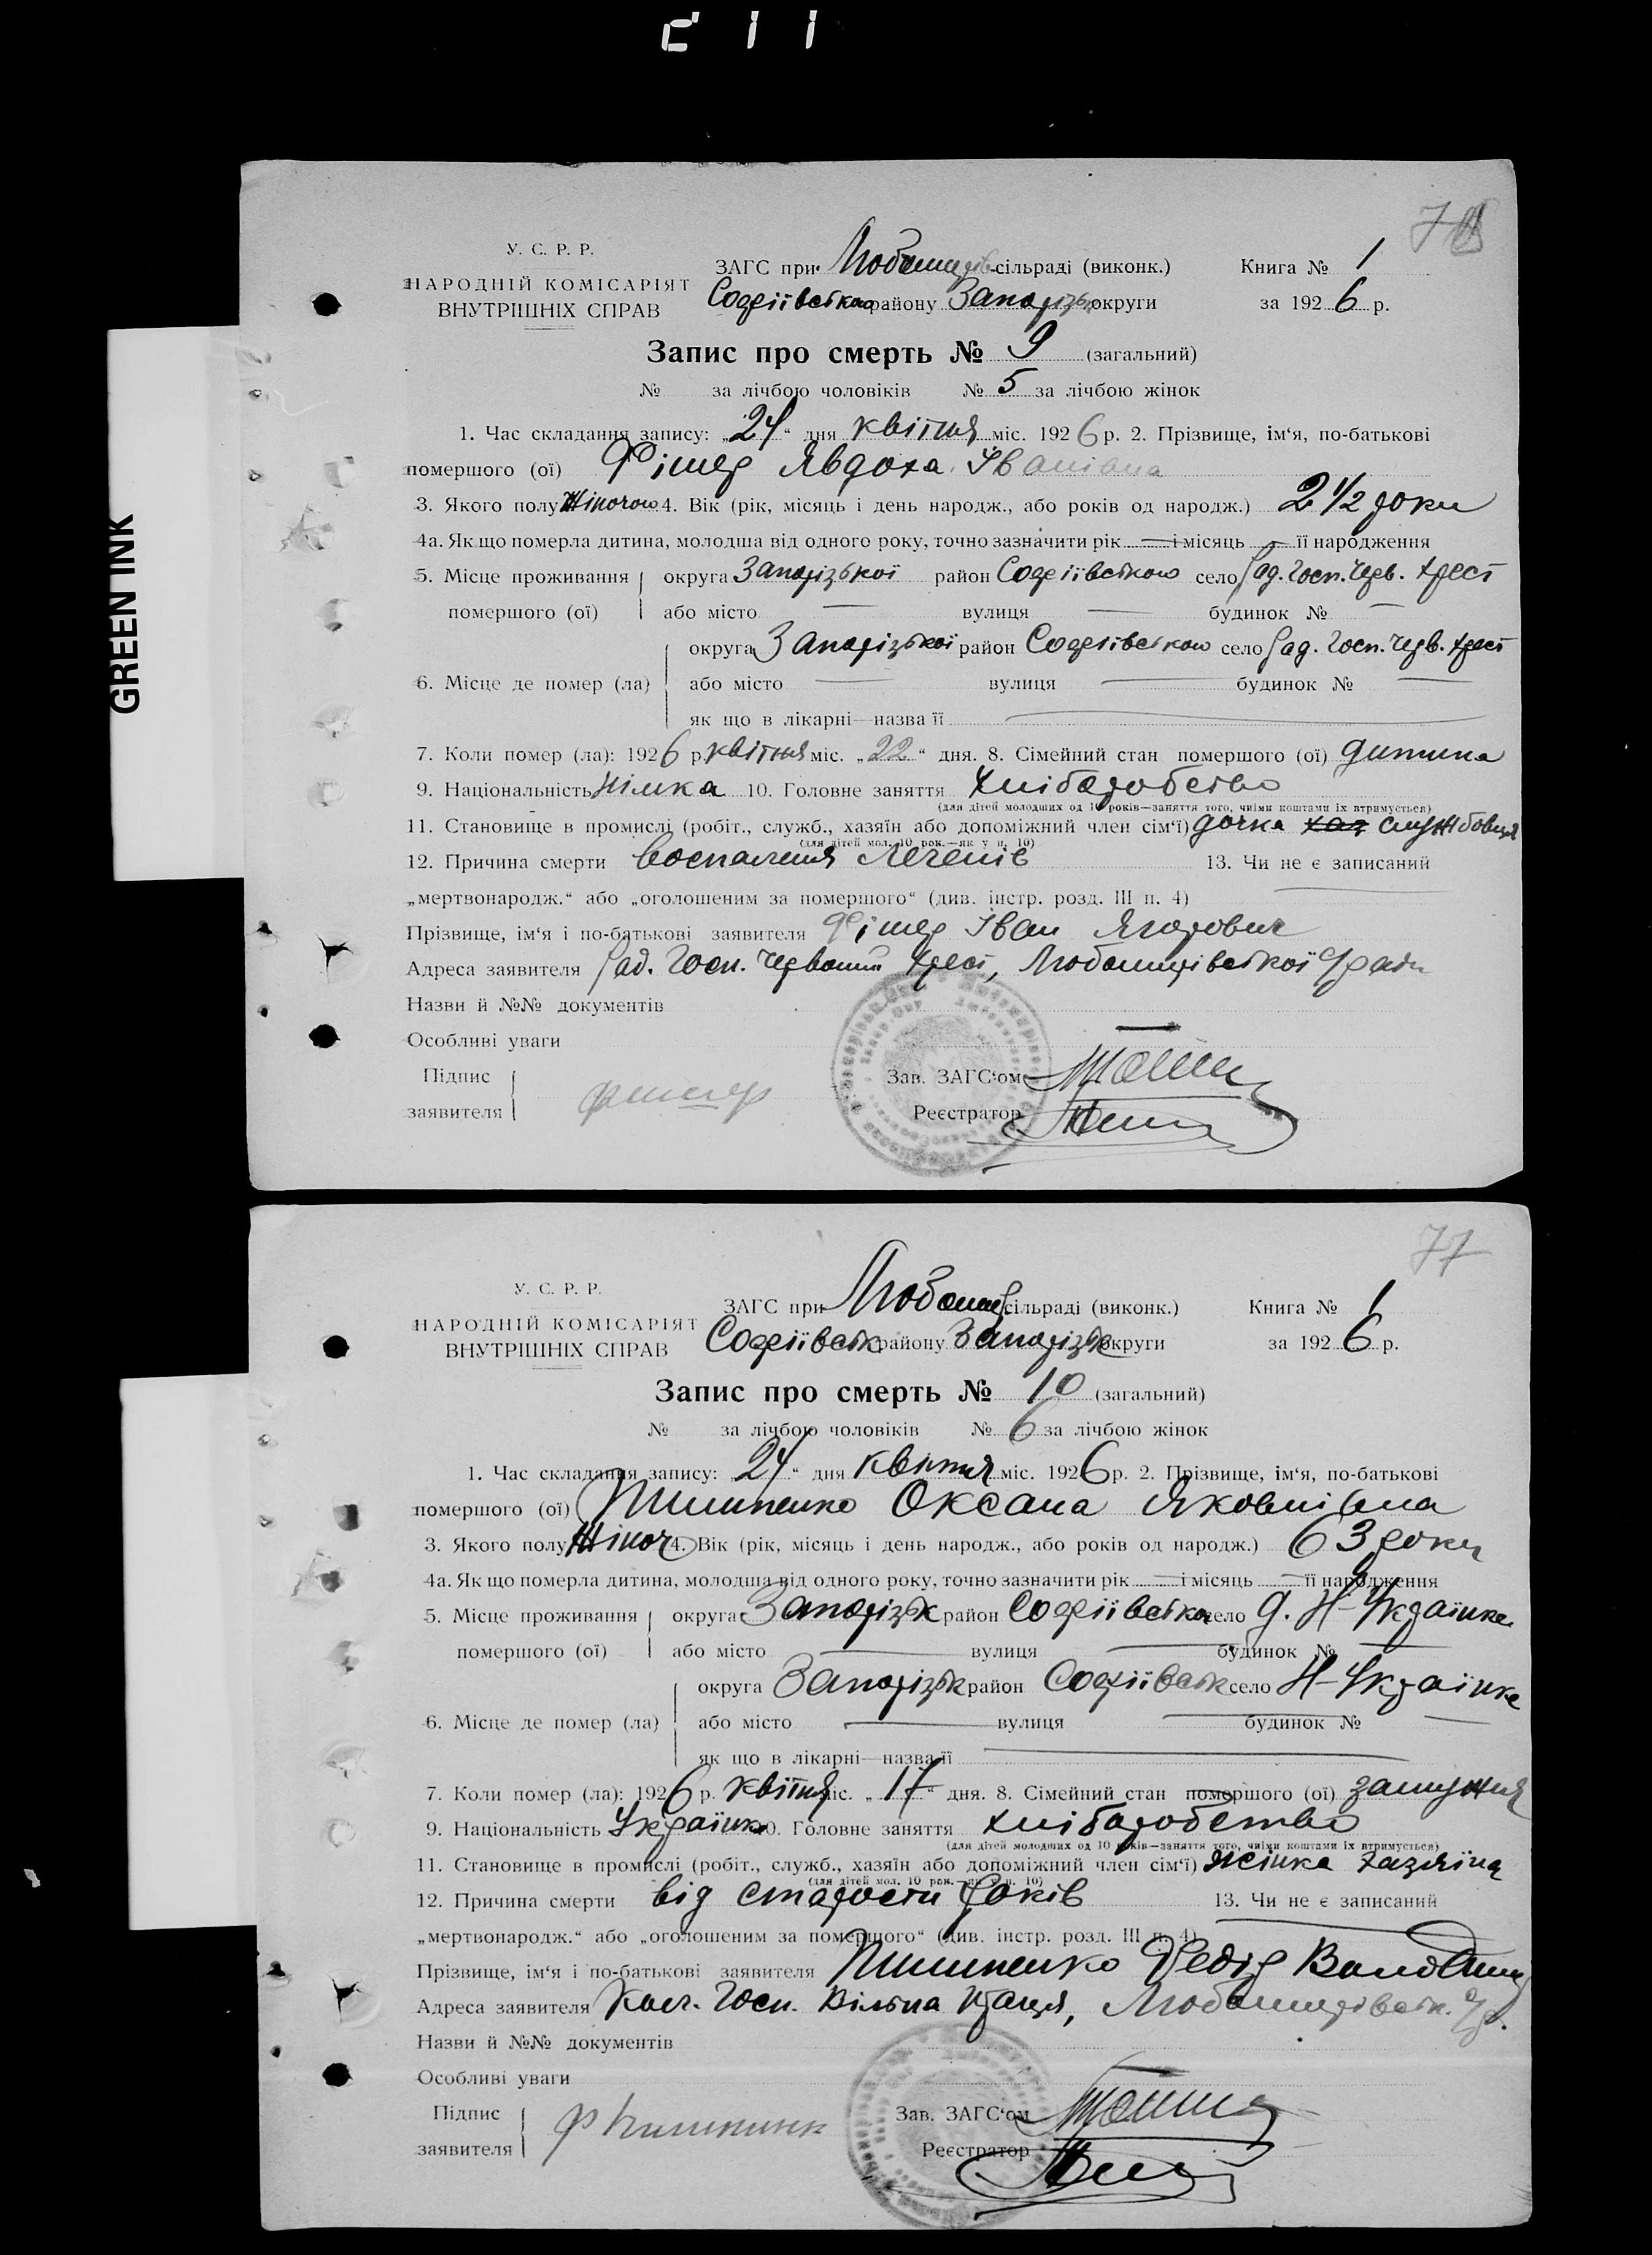 211
GREEN INK
У. С. Р. Р.
НАРОДНІЙ КОМІСАРІЯТ
ВНУТРІШНІХ СПРАВ
ЗАГС при сільраді (виконк.) Книга № 1
Софіївського району Запорізьк округи за 1926 р.
Запис про смерть № 9 (загальний)
№ за лічбою чоловіків № 5 за лічбою жінок
1. Час складання запису: „24“ дня квітня міс. 1926 р. 2. Прізвище, ім‘я, по-батькові
помершого (ої) Фішер Явдоха Іванівна
3. Якого полу Жіночого 4. Вік (рік, місяць і день народж., або років од народж.) 2 1/2 роки
4а. Як що померла дитина, молодша від одного року, точно зазначити рік — і місяць — її народження
5. Місце проживання округа Запорізької район Софіївського село Рад. Госп. Черв. Хрест
помершого (ої) або місто — вулиця — будинок № —
округа Запорізької район Софіївського село Рад. Госп. Черв. Хрест
6. Місце де помер (ла) або місто — вулиця — будинок № —
як що в лікарні—назва її —
7. Коли помер (ла): 1926 р. квітня міс. „22“ дня. 8. Сімейний стан помершого (ої) дитина
9. Національність Німка 10. Головне заняття хліборобство
(для дітей молодших од 10 років—заняття того, чиїми коштами їх втримується)
11. Становище в промислі (робіт., служб., хазяїн або допоміжний член сім‘ї) дочка хаз службовця
(для дітей мол. 10 рок.—як у п. 10)
12. Причина смерти воспаления Легенів 13. Чи не є записаний
„мертвонародж.“ або „оголошеним за помершого“ (див. інстр. розд. III п. 4) —
Прізвище, ім‘я і по-батькові заявителя Фішер Іван Ягорович
Адреса заявителя Рад. Госп. Червоний Хрест,
Назви й №№ документів
Особливі уваги —
Підпис Зав. ЗАГС‘ом
заявителя Фишер Реєстратор
77
У. С. Р. Р.
НАРОДНІЙ КОМІСАРІЯТ
ВНУТРІШНІХ СПРАВ
ЗАГС при сільраді (виконк.) Книга № 1
Софіївськ району Запорізьк округи за 1926 р.
Запис про смерть № 10 (загальний)
№ за лічбою чоловіків № 6 за лічбою жінок
1. Час складання запису: „24“ дня квітня міс. 1926 р. 2. Прізвище, ім‘я, по-батькові
помершого (ої) Оксана Яковлівна
3. Якого полу Жіноч 4. Вік (рік, місяць і день народж., або років од народж.) 63 роки
4а. Як що померла дитина, молодша від одного року, точно зазначити рік — і місяць — її народження
5. Місце проживання округа Запорізьк район Софіївська село д. Н-Українка
помершого (ої) або місто — вулиця — будинок № —
округа Запорізьк район Софіївськ село Н-Українка
6. Місце де помер (ла) або місто — вулиця — будинок № —
як що в лікарні—назва її —
7. Коли помер (ла): 1926 р. квітня міс. „17“ дня. 8. Сімейний стан помершого (ої) замужня
9. Національність Українка 10. Головне заняття хліборобство
(для дітей молодших од 10 років—заняття того, чиїми коштами їх втримується)
11. Становище в промислі (робіт., служб., хазяїн або допоміжний член сім‘ї) жінка хазяїна
(для дітей мол. 10 рок.—як у п. 10)
12. Причина смерти від старости років 13. Чи не є записаний
„мертвонародж.“ або „оголошеним за помершого“ (див. інстр. розд. III п. 4) —
Прізвище, ім‘я і по-батькові заявителя Федір
Адреса заявителя Госп. Вільна Праця,
Назви й №№ документів
Особливі уваги
Підпис Зав. ЗАГС‘ом
заявителя Реєстратор